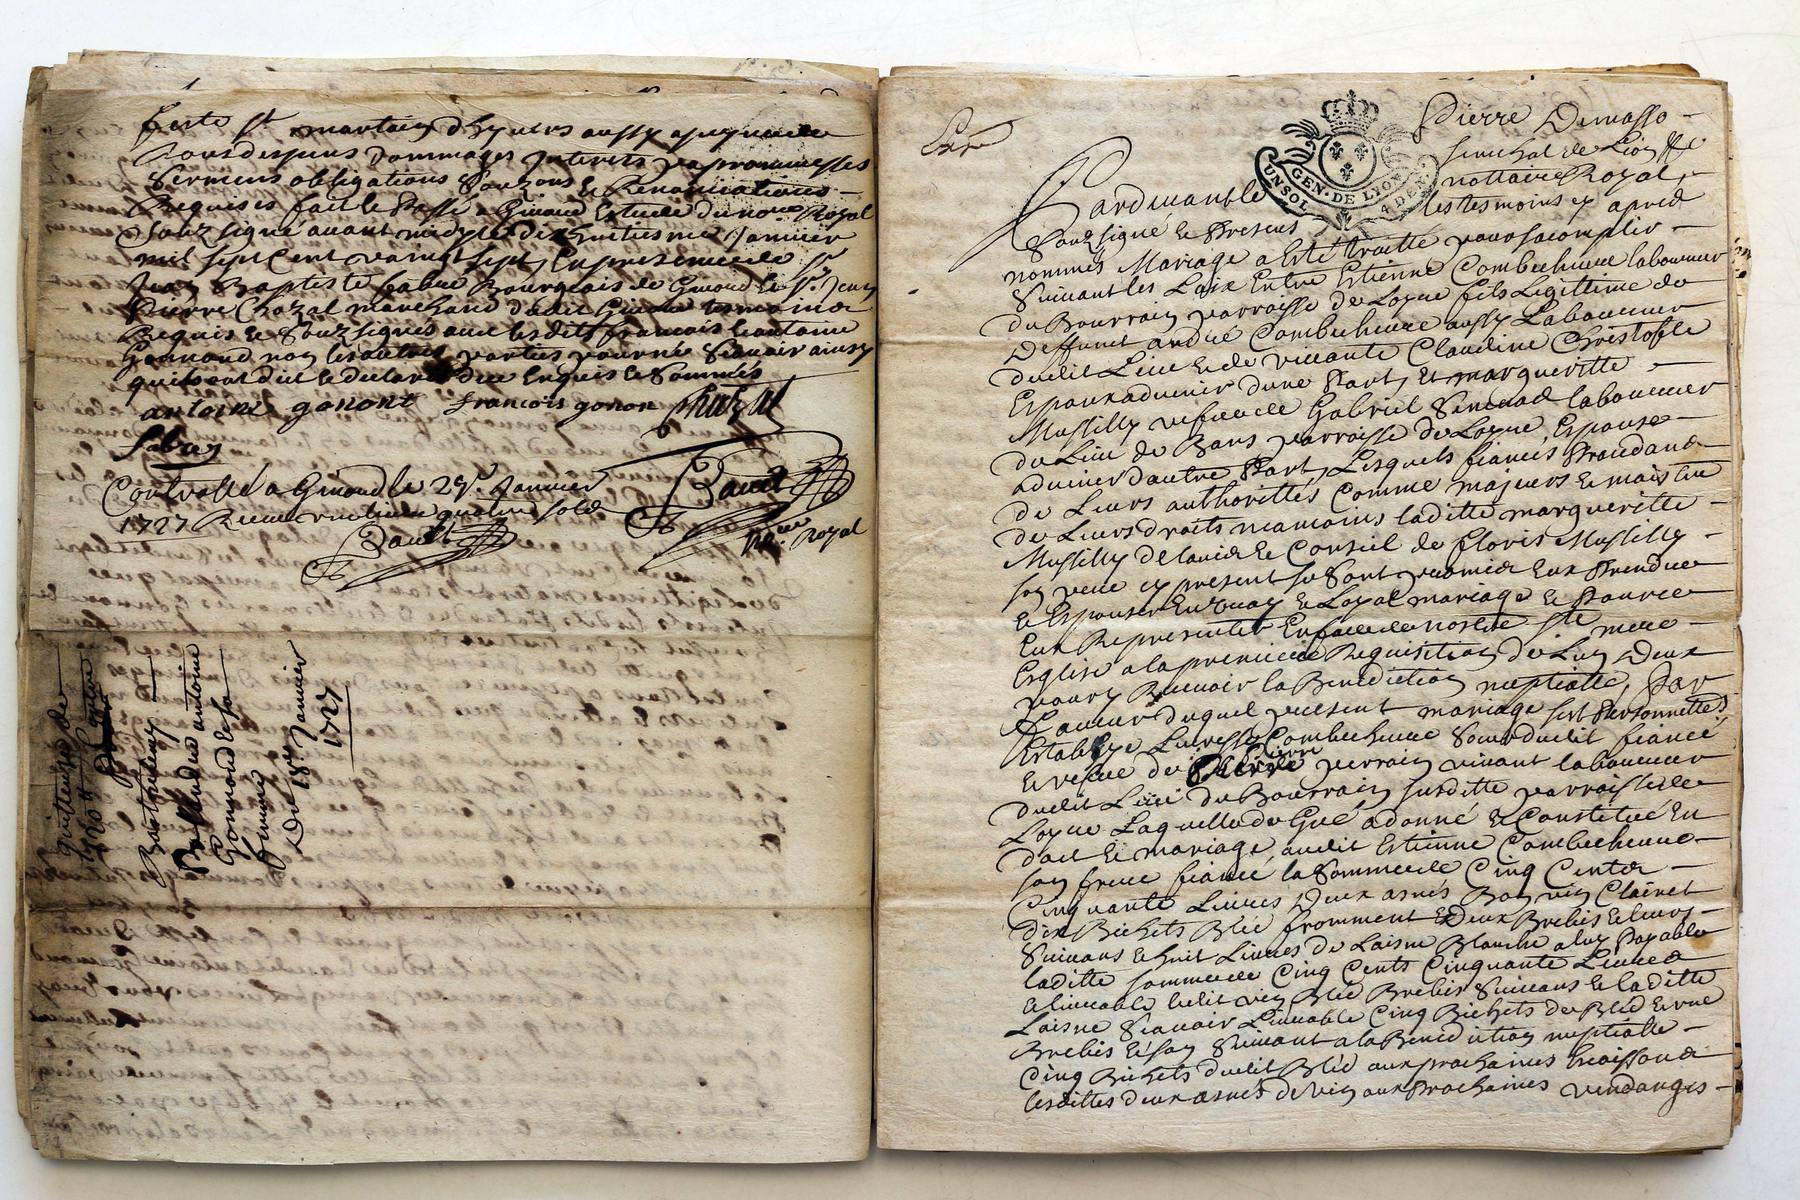 feste St martain d'hyvers aussy a peyne de
Tous despens dommages interests par promesses
sermens obligations et Renonciations
Requises fait & Passé a Givord Estude du nore Royal
Souzsigné avant midy le dix huitiesme Janvier
mil sept Cent vaingt sept, En presence de sr
Jean Baptiste fabre Bourgeois de Givord & sr Jean
Pierre Chazal marchand dudit Givord tesmoins
Requis & Souzsignes avec lesdits francois & antoine
Gonnond non les autres parties pour ne Scavoir ainsy
quils ont dit & declaré de ce Enquis & Sommés
antoine gonont francois gonon Chazal
fabre
Controllé a Givord le 28e Janvier
1727 Receu quatre sols
nore Royal
quittance de
Barthelemy
antoine
Gonnond & sa
femme
Du 18e Janvier
1727
Pierre Demasso
senechal de Lion
Pardevant le
nottaire Royal
UNSOL GEN·DE LYON 4 DEN.
Souzsigné & Presens les tesmoins cy apres
nommés Mariage a Esté traitté pour sacomplir
Suivant les Loix Entre Estienne Combechieure laboureur
du Bourrain parroisse de Loyre fils Legittime de
Deffunct andré Combechieure aussy Laboureur
dudit Lieu & de vivante Claudine Christofle
Espoux advenir dune Part, Et margueritte
Mussilly vefve de Gabriel laboureur
du Lieu de Bans parroisse de Loyre, Espouse
advenir dautre Part, Lesquels fiancés Proceddans
de Leurs authorittés Comme majeurs & maistre
de Leurs droits neamoins laditte margueritte
Mussilly de lavis & Conseil de floris Mussilly
son pere cy present se Sont promis Eux Prendre
& Espouser En vray & Loyal mariage & Pource
Eux Representer En face de nostre Ste mere
Eglise a la premiere Requisition de Lun Deux
pour y Recevoir la Benediction nuptialle, Par
Faveur duquel present mariage sest Personnellet
Establye Combechieure Soeur dudit fiancé
& vefve de Pierre perrain vivant laboureur
dudit Lieu du Bourrain susditte parroisse de
Loyre Laquelle de Gré a donné & Constitué En
dot & mariage, audit Estienne Combechieure
son frere fiancé la Somme de Cinq Cents
Cinquante Livres Deux asnés Bon vin Clairet
dix Bichets Blé fromment & Deux Brebis & leurs
Suivans & huit Livres de Laisne Blanche a luy Payable
laditte somme de Cinq Cents Cinquante Livres
& ledit vin Blé Brebis Suivans & laditte
Laisne Scavoir Cinq Bichets de Blé & une
Brebis & son Suivant a la Benediction nuptialle
Cinq Bichets dudit Blé aux prochaines moissons
lesdittes deux asnés de vin aux Prochaines vendanges